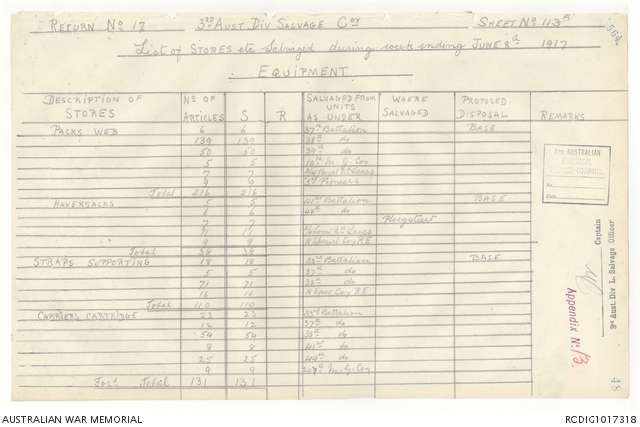 RETURN No 17 3RD AUST DIV SALVAGE COY SHEET No 113
List of STORES etc Salvaged during week ending JUNE 8th 1917
EQUIPMENT
DESCRIPTION OF STORES No OF ARTICLES S R SALVAGED FROM UNITS AS UNDER WHERE SALVAGED PROPOSED DISPOSAL REMARKS
PACKS WEB 6 6 37th Battalion BASE
139 139 38th do
50 50 39th do
5 5 10th M. G. Coy
7 7
9 9 3rd Pioneers
Total 216 216
HAVERSACKS 5 5 Battalion BASE
6 6 do
7 7 Ploegsteert
17 Lancs
9 9 Coy R.E
Total 38 38
STRAPS SUPPORTING 18 18 Battalion BASE
5 5 37th do
71 71 38th do
16 16 Coy R.E
Total 110 110
CARRIERS CARTRIDGE 23 23 Battalion
18 12 37th do
54 54 do
8 8 do
25 25 do
9 9 M. G. Coy
Total 131 131
AUSTRALIAN
Captain
3rd Aust. Div L. Salvage Officer
Appendix No 13.
48
AUSTRALIAN WAR MEMORIAL RCDIG1017318